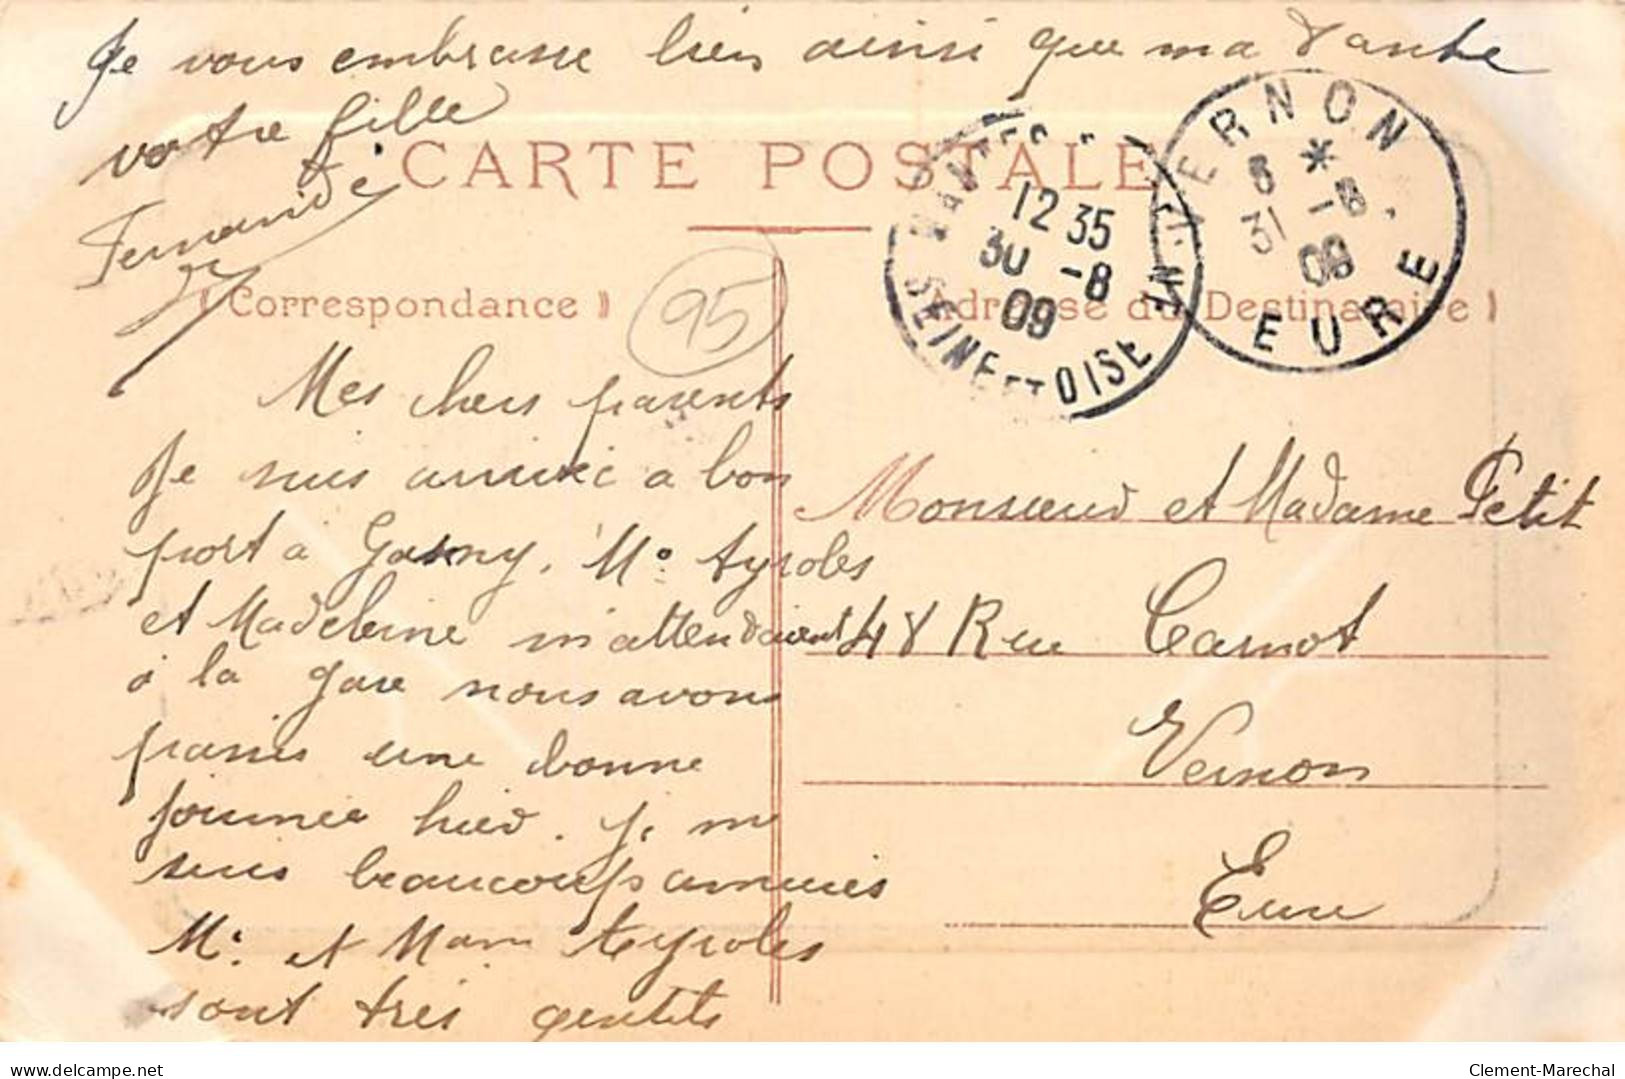 Je vous embrasse bien ainsi que ma Tante
votre fille
Fernande
CARTE POSTALE
Correspondance
95
Adresse du Destinataire
12 35
30 -8
09
SEINE ET OISE
VERNON
8 *
31 -8
09
EURE
Mes chers parents
Je suis arrivée a bon
port à Gasny. Mr Ayroles
et Madeleine m'attendaient
à la gare nous avons
passés une bonne
journée hier. Je me
suis beaucoup amusés
Mr et Mam Ayroles
sont très gentils
Monsieur et Madame Petit
48 Rue Carnot
Vernon
Eure
delcampe.net
Clement-Marechal